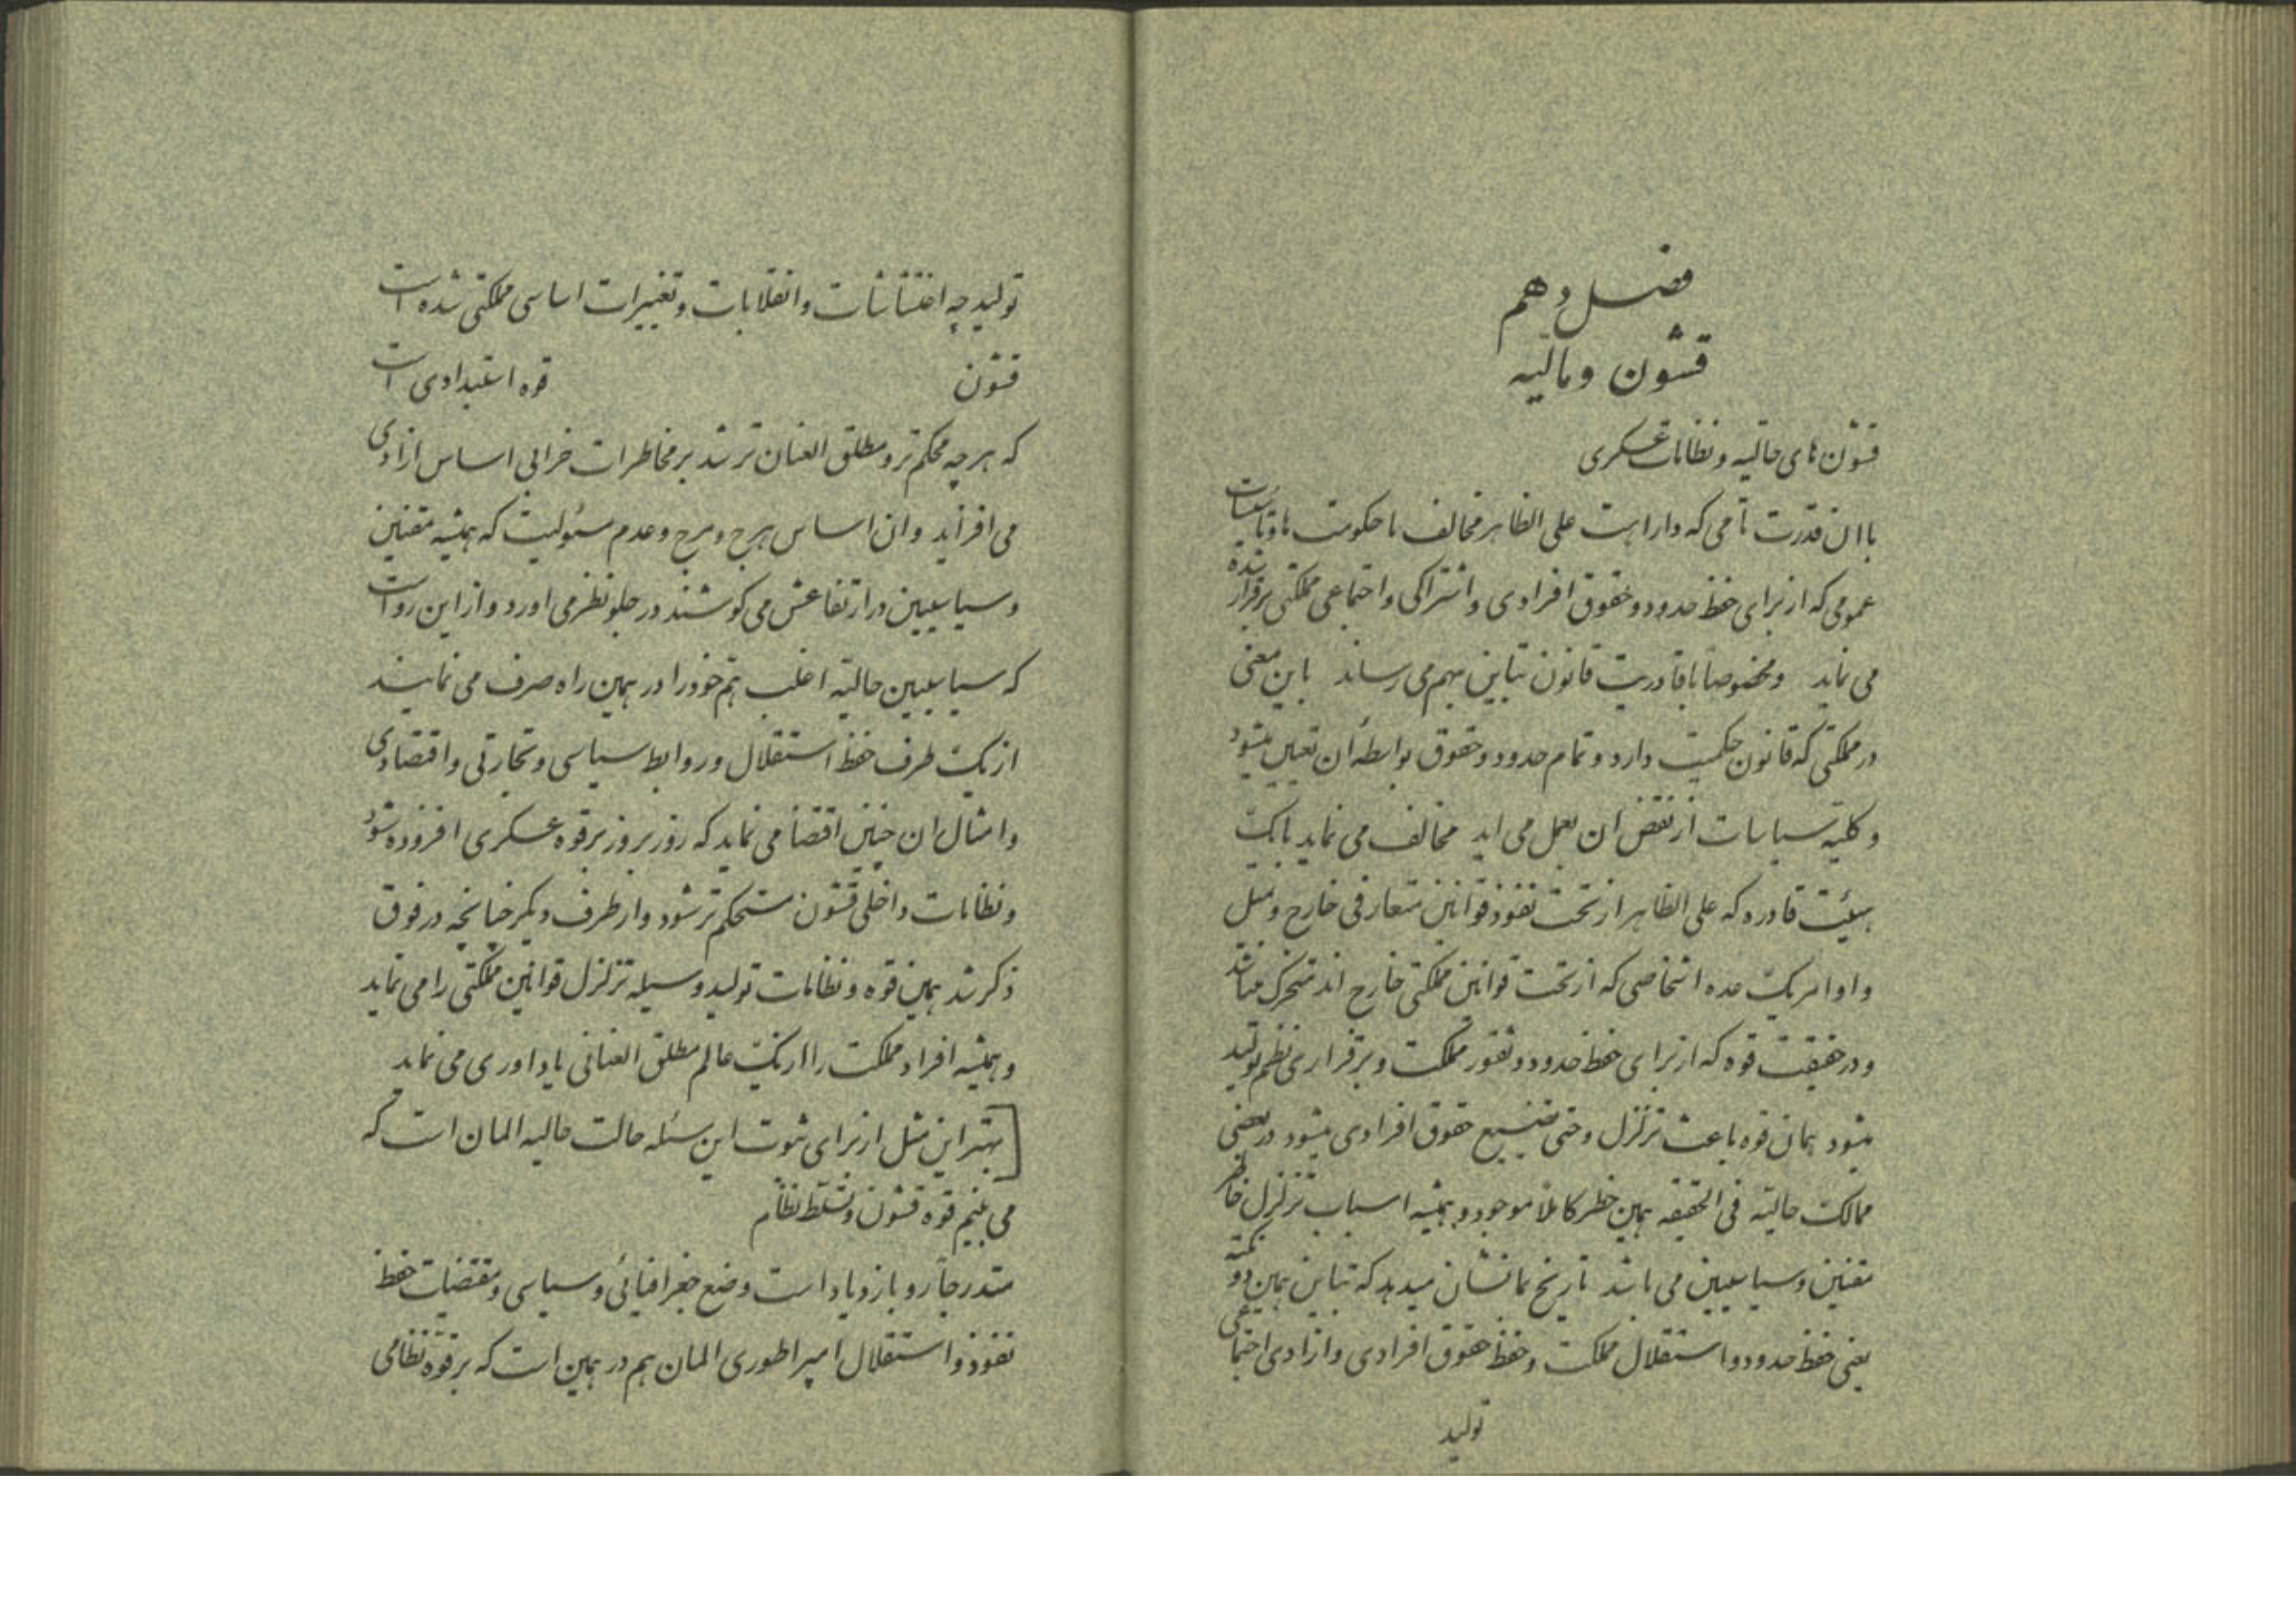 فصل دهم
قشون و مالیه
قشون های حالیه و نظامات عسکری
با ان قدرت تامی که داراست علی الظاهر مخالف با حکومت ها و تاسیسات
عمومی که از برای حفظ حدود و حقوق افرادی و اشتراکی و اجتماعی مملکتی برقرار شده
می نماید و مخصوصاً با قادریت قانون تباین بهم می رساند باین معنی
در مملکتی که قانون حکمیت دارد و تمام حدود و حقوق بواسطهٔ ان تعیین میشود
و کلیه سیاسات از نقض ان بعمل می اید مخالف می نماید با یک
هیئت قادره که علی الظاهر از تحت نفوذ قوانین متعارفی خارج و بمیل
و اوامر یک عده اشخاصی که از تحت قوانین مملکتی خارج اند متحرک میباشد
و در حقیقت قوه که از برای حفظ حدود و ثغور مملکت و برقراری نظم تولید
میشود همان قوه باعث تزلزل و حتی تضییع حقوق افرادی میشود در بعضی
ممالک حالیه فی الحقیقه همین خطر کاملاً موجود و همیشه اسباب تزلزل خاطر
مقنین و سیاسیین می باشد تاریخ بما نشان میدهد که تباین همین دو نکته
یعنی حفظ حدود و استقلال مملکت و حفظ حقوق افرادی و ازادی اجتماعی
تولید
تولید چه اغتشاشات و انقلابات و تغییرات اساسی مملکتی شده است
قشون قوه استبدادی است
که هر چه محکم تر و مطلق العنان تر شد بر مخاطرات خرابی اساس ازادی
می افزاید و ان اساس هرج و مرج و عدم مسئولیت که همیشه مقنین
و سیاسیین در ارتفاعش می کوشند در جلو نظر می اورد و از این رو است
که سیاسیین حالیه اغلب هم خود را در همین راه صرف می نمایند
از یک طرف حفظ استقلال و روابط سیاسی و تجارتی و اقتصادی
و امثال ان چنین اقتضا می نماید که روز بروز بر قوه عسکری افزوده شود
و نظامات داخلی قشون مستحکم تر شود و از طرف دیگر چنانچه در فوق
ذکر شد همین قوه و نظامات تولید وسیله تزلزل قوانین مملکتی را می نماید
و همیشه افراد مملکت را از یک عالم مطلق العنانی یاداوری می نماید
[بهتراین مثل از برای ثبوت این مسئله حالت حالیه المان است که
می بینیم قوه قشون و تسلط نظام
متدرجاً رو بازدیاد است وضع جغرافیائی و سیاسی و مقتضیات حفظ
نفوذ و استقلال امپراطوری المان هم در همین است که بر قوه نظامی